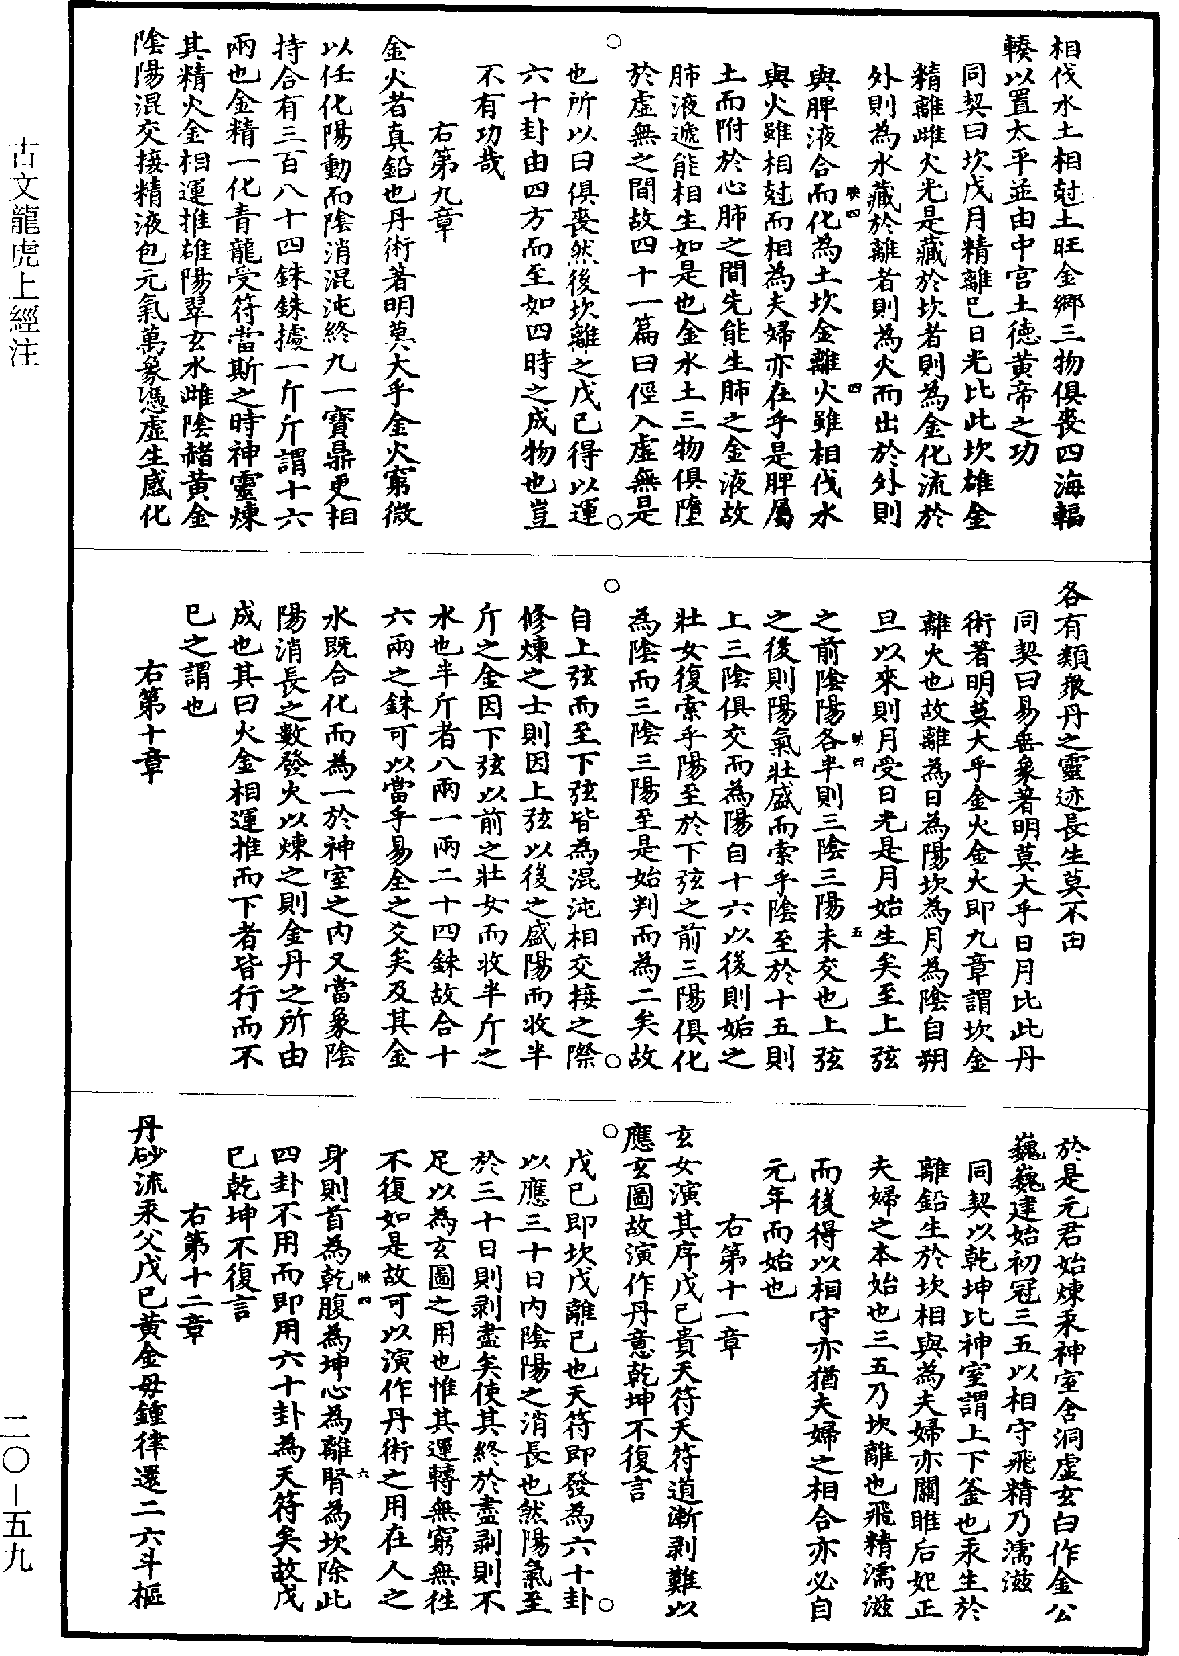 相伐水土相尅土旺金鄉三物俱喪四海輻
輳以置太平並由中宮土德黃帝之功
同契曰坎戊月精離巳日光比此坎雄金
精離雌火光是藏於坎者則為金化流於
外則為水藏於離者則為火而出於外則
與脾液合而化為土坎金離火雖相伐水
映四 四
與火雖相尅而相為夫婦亦在乎是脾屬
土而附於心肺之間先能生肺之金液故
肺液遞能相生如是也金水土三物俱墮
於虛無之間故四十一篇曰徑入虛無是
也所以曰俱喪然後坎離之戊巳得以運
六十卦由四方而至如四時之成物也豈
不有功哉
右第九章
金火者真鉛也丹術著明莫大乎金火窮微
以任化陽動而陰消混沌終九一寶鼎更相
持合有三百八十四銖銖據一斤斤謂十六
兩也金精一化青龍受符當斯之時神靈煉
其精火金相運推雄陽翠玄水雌陰赭黃金
陰陽混交接精液包元氣萬象憑虛生感化
各有類眾丹之靈迹長生莫不由
同契曰易垂象著明莫大乎日月比此丹
術著明莫大乎金火金火即九章謂坎金
離火也故離為日為陽坎為月為陰自朔
旦以來則月受日光是月始生矣至上弦
之前陰陽各半則三陰三陽未交也上弦
映四 五
之後則陽氣壯盛而索乎陰至於十五則
上三陰俱交而為陽自十六以後則姤之
壯女復索乎陽至於下弦之前三陽俱化
為陰而三陰三陽至是始判而為二矣故
自上弦而至下弦皆為混沌相交接之際
修煉之士則因上弦以後之盛陽而收半
斤之金因下弦以前之壯女而收半斤之
水也半斤者八兩一兩二十四銖故合十
六兩之銖可以當乎易全之交矣及其金
水既合化而為一於神室之內又當象陰
陽消長之數發火以煉之則金丹之所由
成也其曰火金相運推而下者皆行而不
巳之謂也
右第十章
於是元君始煉汞神室含洞虛玄白作金公
巍巍建始初冠三五以相守飛精乃濡滋
同契以乾坤比神室謂上下釜也汞生於
離鉛生於坎相與為夫婦亦關雎后妃正
夫婦之本始也三五乃坎離也飛精濡滋
而後得以相守亦猶夫婦之相合亦必自
元年而始也
右第十一章
玄女演其序戊巳貴天符天符道漸剥難以
應玄圖故演作丹意乾坤不復言
戊巳即坎戊離巳也天符即發為六十卦
以應三十日內陰陽之消長也然陽氣至
於三十日則剥盡矣使其終於盡剥則不
足以為玄圖之用也惟其運轉無窮無往
不復如是故可以演作丹術之用在人之
身則首為乾腹為坤心為離腎為坎除此
映四 六
四卦不用而即用六十卦為天符矣故戊
巳乾坤不復言
右第十二章
丹砂流汞父戊巳黃金母鍾律還二六斗樞
古文龍虎上經注
二〇—五九